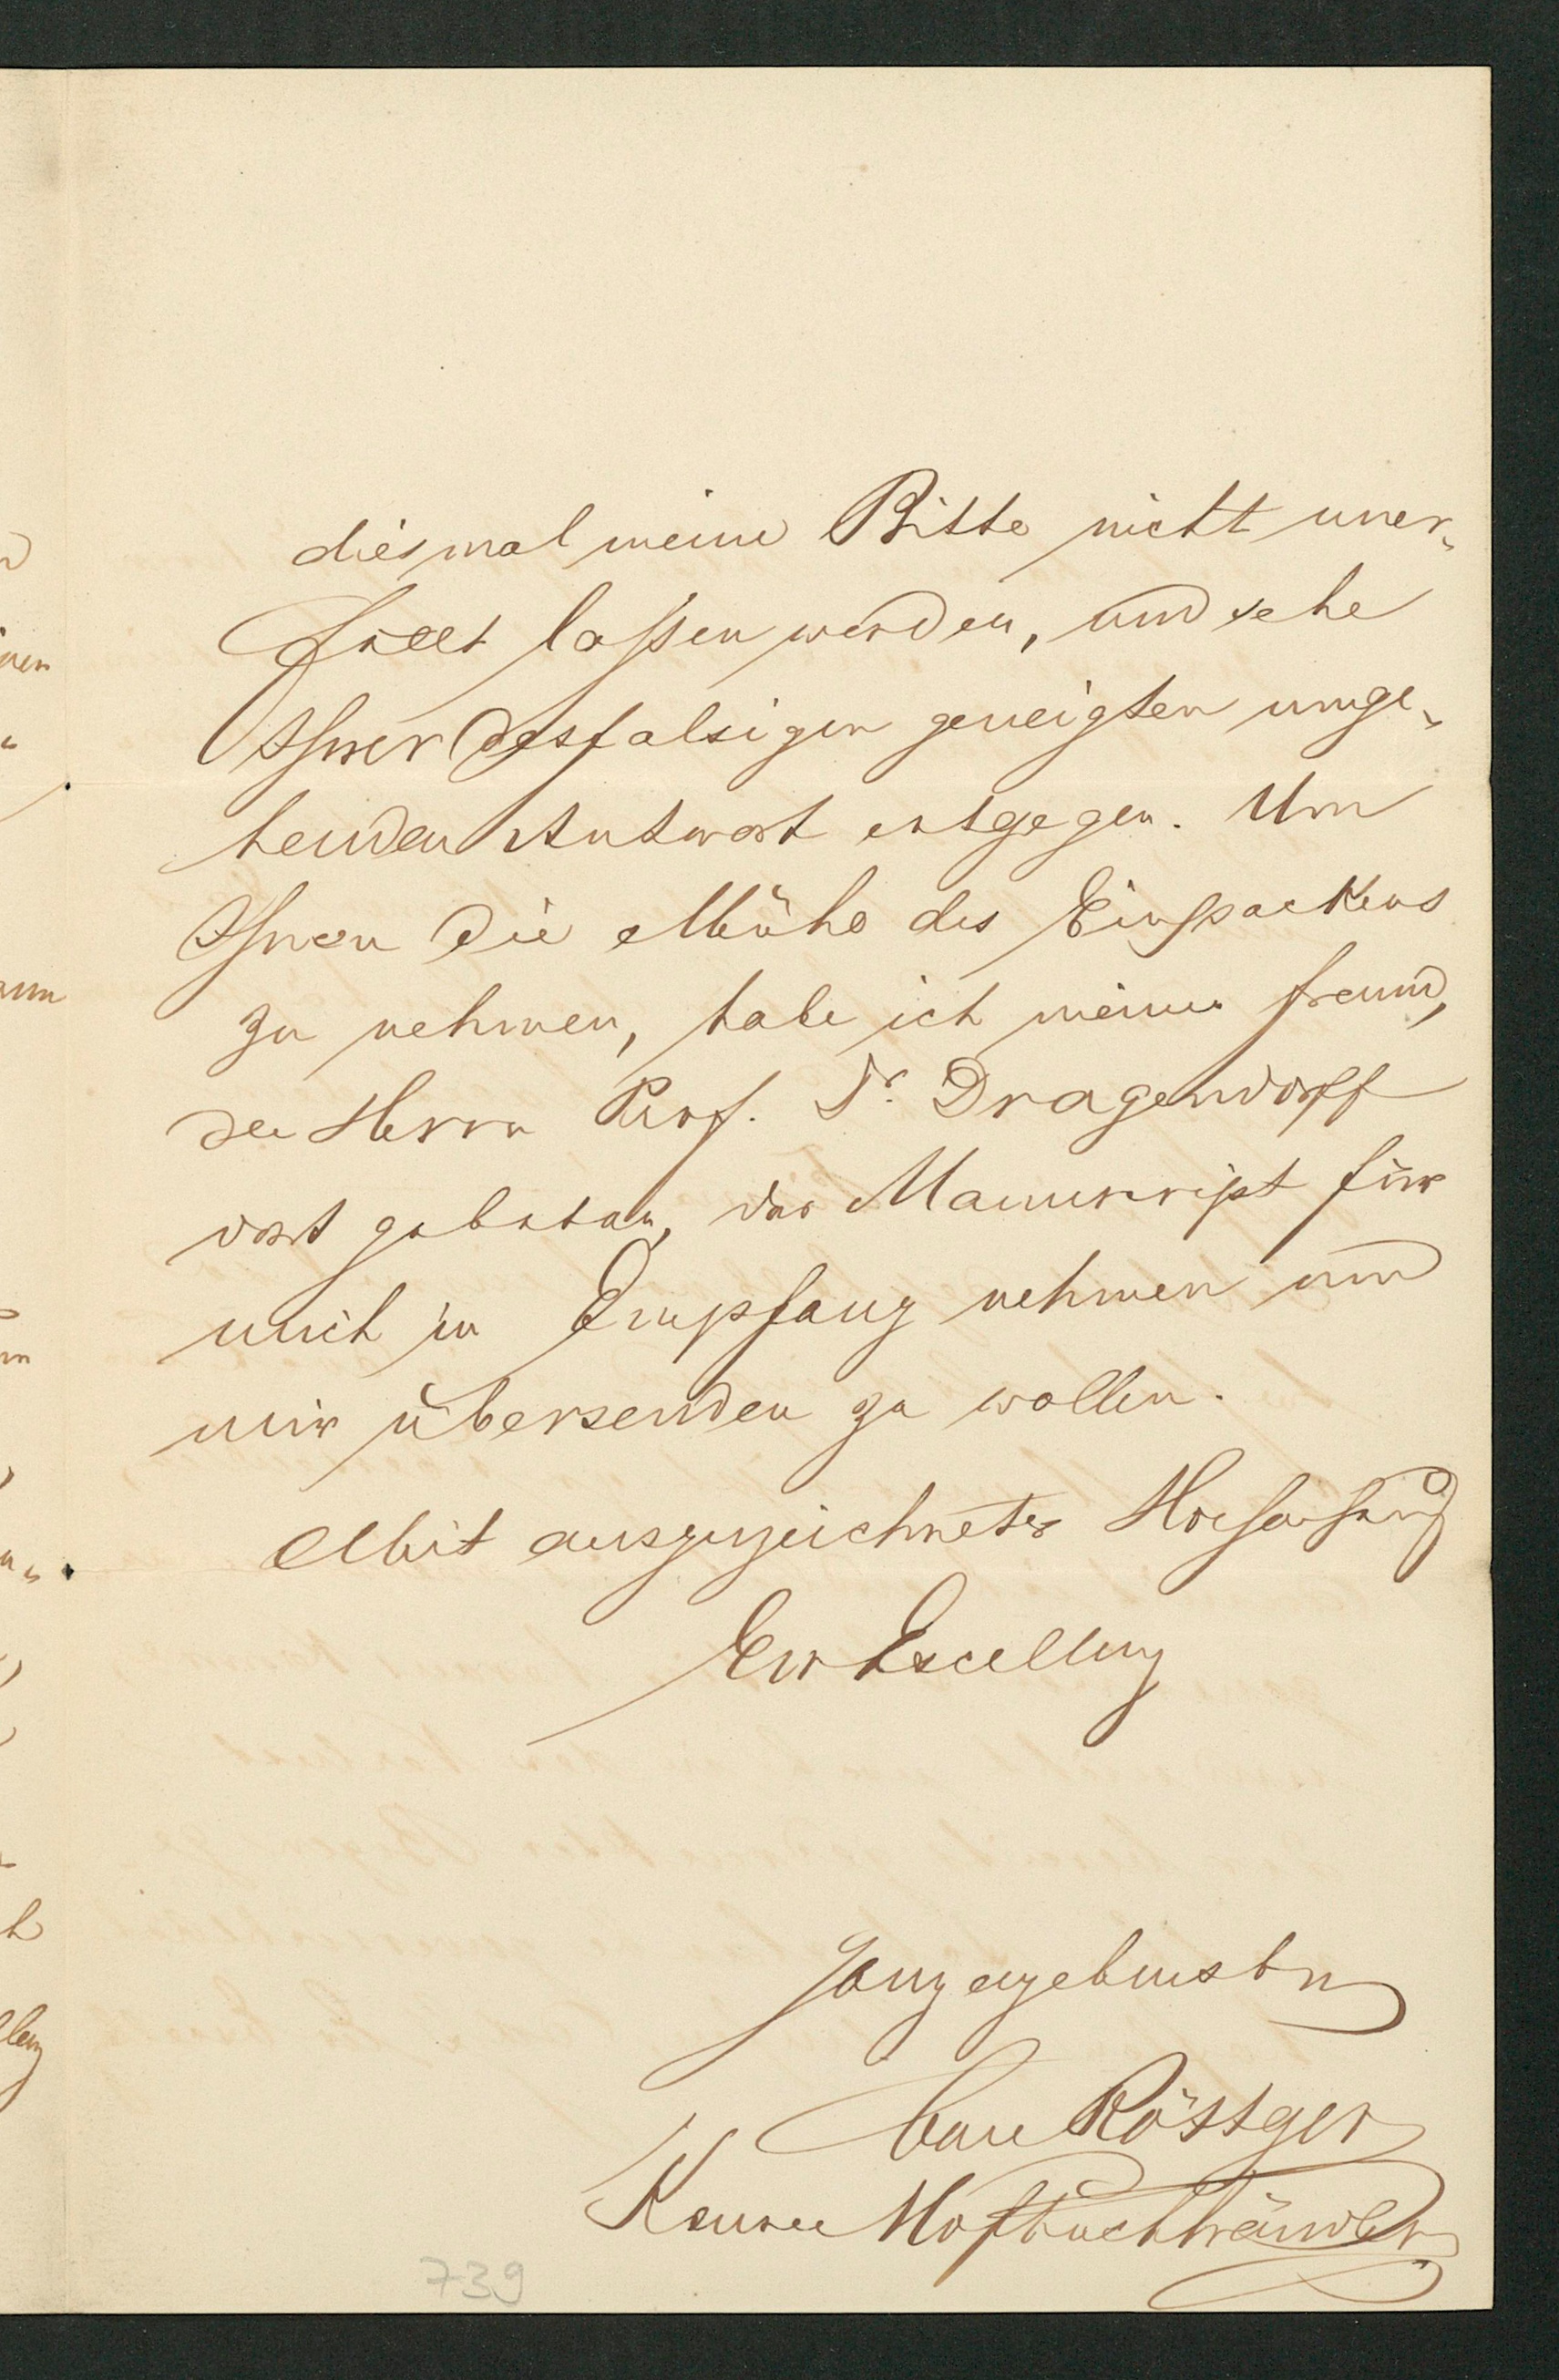 diesmal meine Bitte nicht uner-
füllt lassen werden, und sehe
Ihrer desfalsigen geneigten umge-
henden Antwort entgegen. Um
Ihnen die Mühe des Einpackens
zu nehmen, habe ich meinen Freund,
den Herrn Prof. Dr. Dragendorff
dort gebeten, das Manuscript für
mich in Empfang nehmen und
mir übersenden zu wollen.
Mit ausgezeichneter Hochachtung
Ew Excellenz
ganz ergebenster
Carl Röttger
Kaiserl Hofbuchhändler
739